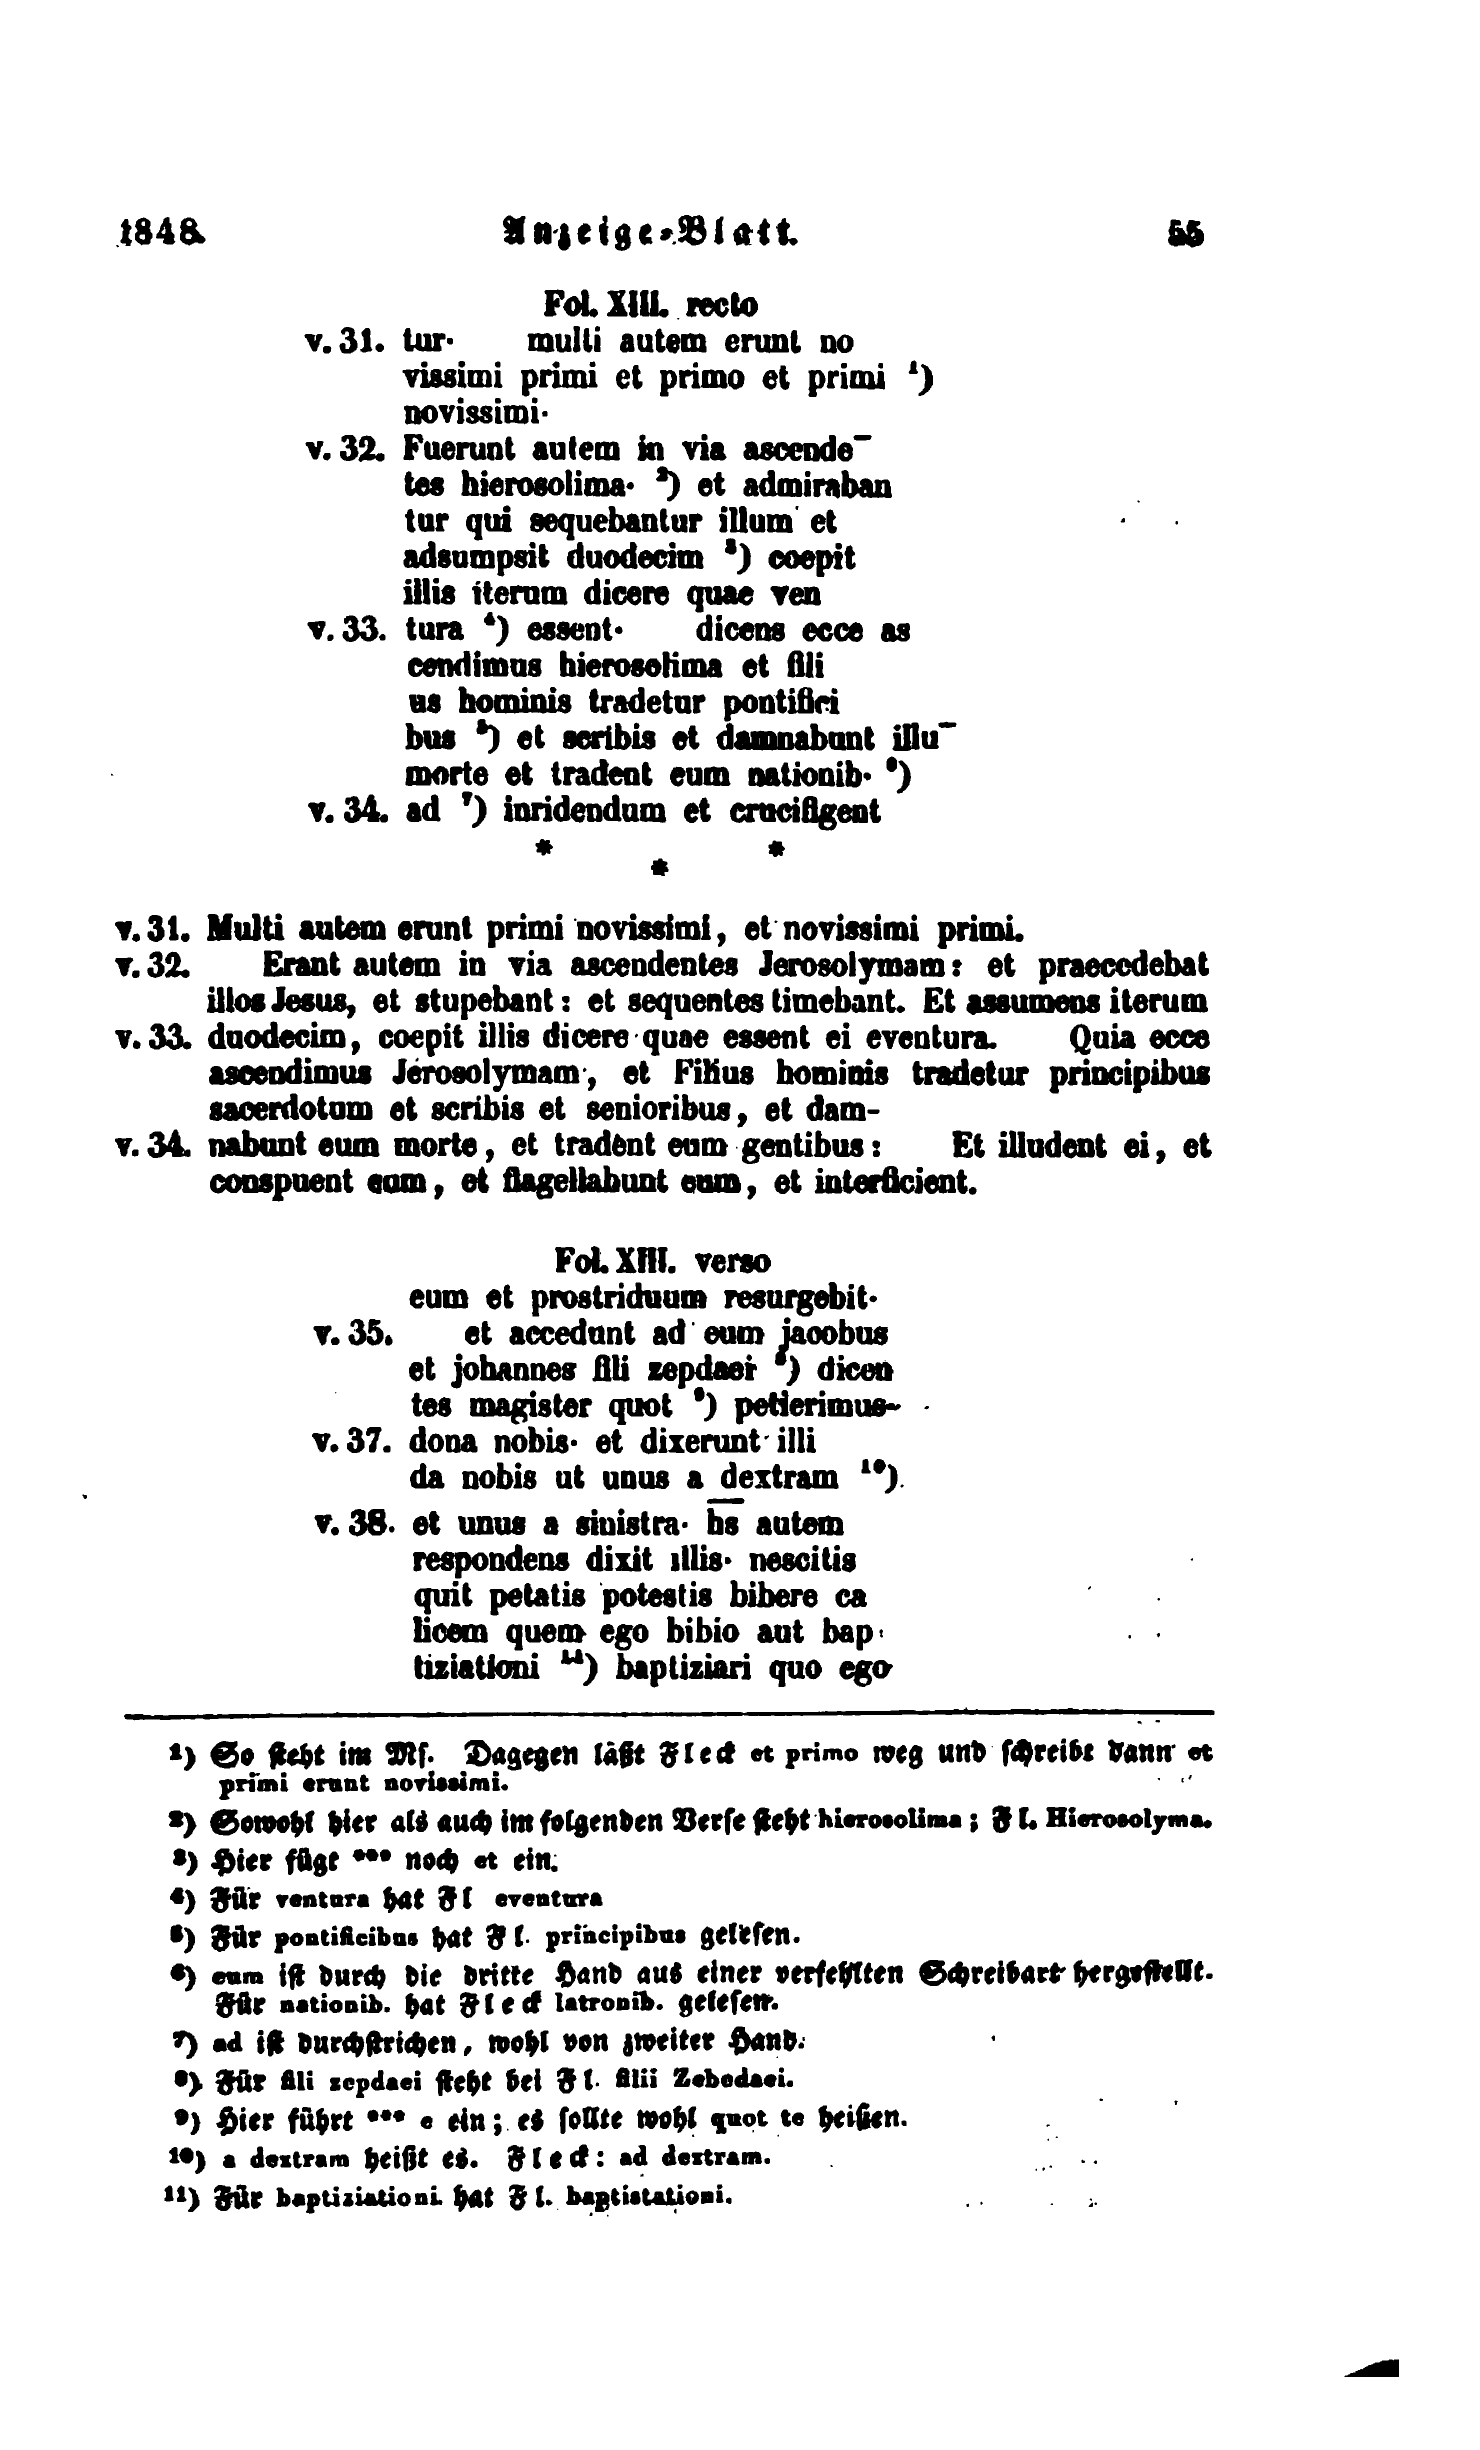 1848. Anzeige-Blatt. 55
Fol. XIII. recto
v. 31. tur· multi autem erunt no
vissimi primi et primo et primi ¹)
novissimi·
v. 32. Fuerunt autem in via ascende¯
tes hierosolima· ²) et admiraban
tur qui sequebantur illum et
adsumpsit duodecim ³) coepit
illis iterum dicere quae ven
v. 33. tura ⁴) essent· dicens ecce as
cendimus hierosolima et fili
us hominis tradetur pontifici
bus ⁵) et scribis et damnabunt illu¯
morte et tradent eum nationib· ⁶)
v. 34. ad ⁷) inridendum et crucifigent
* * *
v. 31. Multi autem erunt primi novissimi, et novissimi primi.
v. 32. Erant autem in via ascendentes Jerosolymam: et praecedebat
illos Jesus, et stupebant: et sequentes timebant. Et assumens iterum
v. 33. duodecim, coepit illis dicere quae essent ei eventura. Quia ecce
ascendimus Jerosolymam, et Filius hominis tradetur principibus
sacerdotum et scribis et senioribus, et dam-
v. 34. nabunt eum morte, et tradent eum gentibus: Et illudent ei, et
conspuent eum, et flagellabunt eum, et interficient.
Fol. XIII. verso
eum et prostriduum resurgebit·
v. 35. et accedunt ad eum jacobus
et johannes fili zepdaei ⁸) dicen
tes magister quot ⁹) petierimus
v. 37. dona nobis· et dixerunt illi
da nobis ut unus a dextram ¹⁰)
v. 38. et unus a sinistra· h̅s̅ autem
respondens dixit illis· nescitis
quit petatis potestis bibere ca
licem quem ego bibio aut bap
tiziationi ¹¹) baptiziari quo ego
¹) So steht im Ms. Dagegen läßt Fleck et primo weg und schreibt dann et
primi erunt novissimi.
²) Sowohl hier als auch im folgenden Verse steht hierosolima; Fl. Hierosolyma.
³) Hier fügt *** noch et ein.
⁴) Für ventura hat Fl eventura
⁵) Für pontificibus hat Fl. principibus gelesen.
⁶) eum ist durch die dritte Hand aus einer verfehlten Schreibart hergestellt.
Für nationib. hat Fleck latronib. gelesen.
⁷) ad ist durchstrichen, wohl von zweiter Hand.
⁸) Für fili zepdaei steht bei Fl. filii Zebedaei.
⁹) Hier führt *** e ein; es sollte wohl quot te heißen.
¹⁰) a dextram heißt es. Fleck: ad dextram.
¹¹) Für baptiziationi hat Fl. baptistationi.